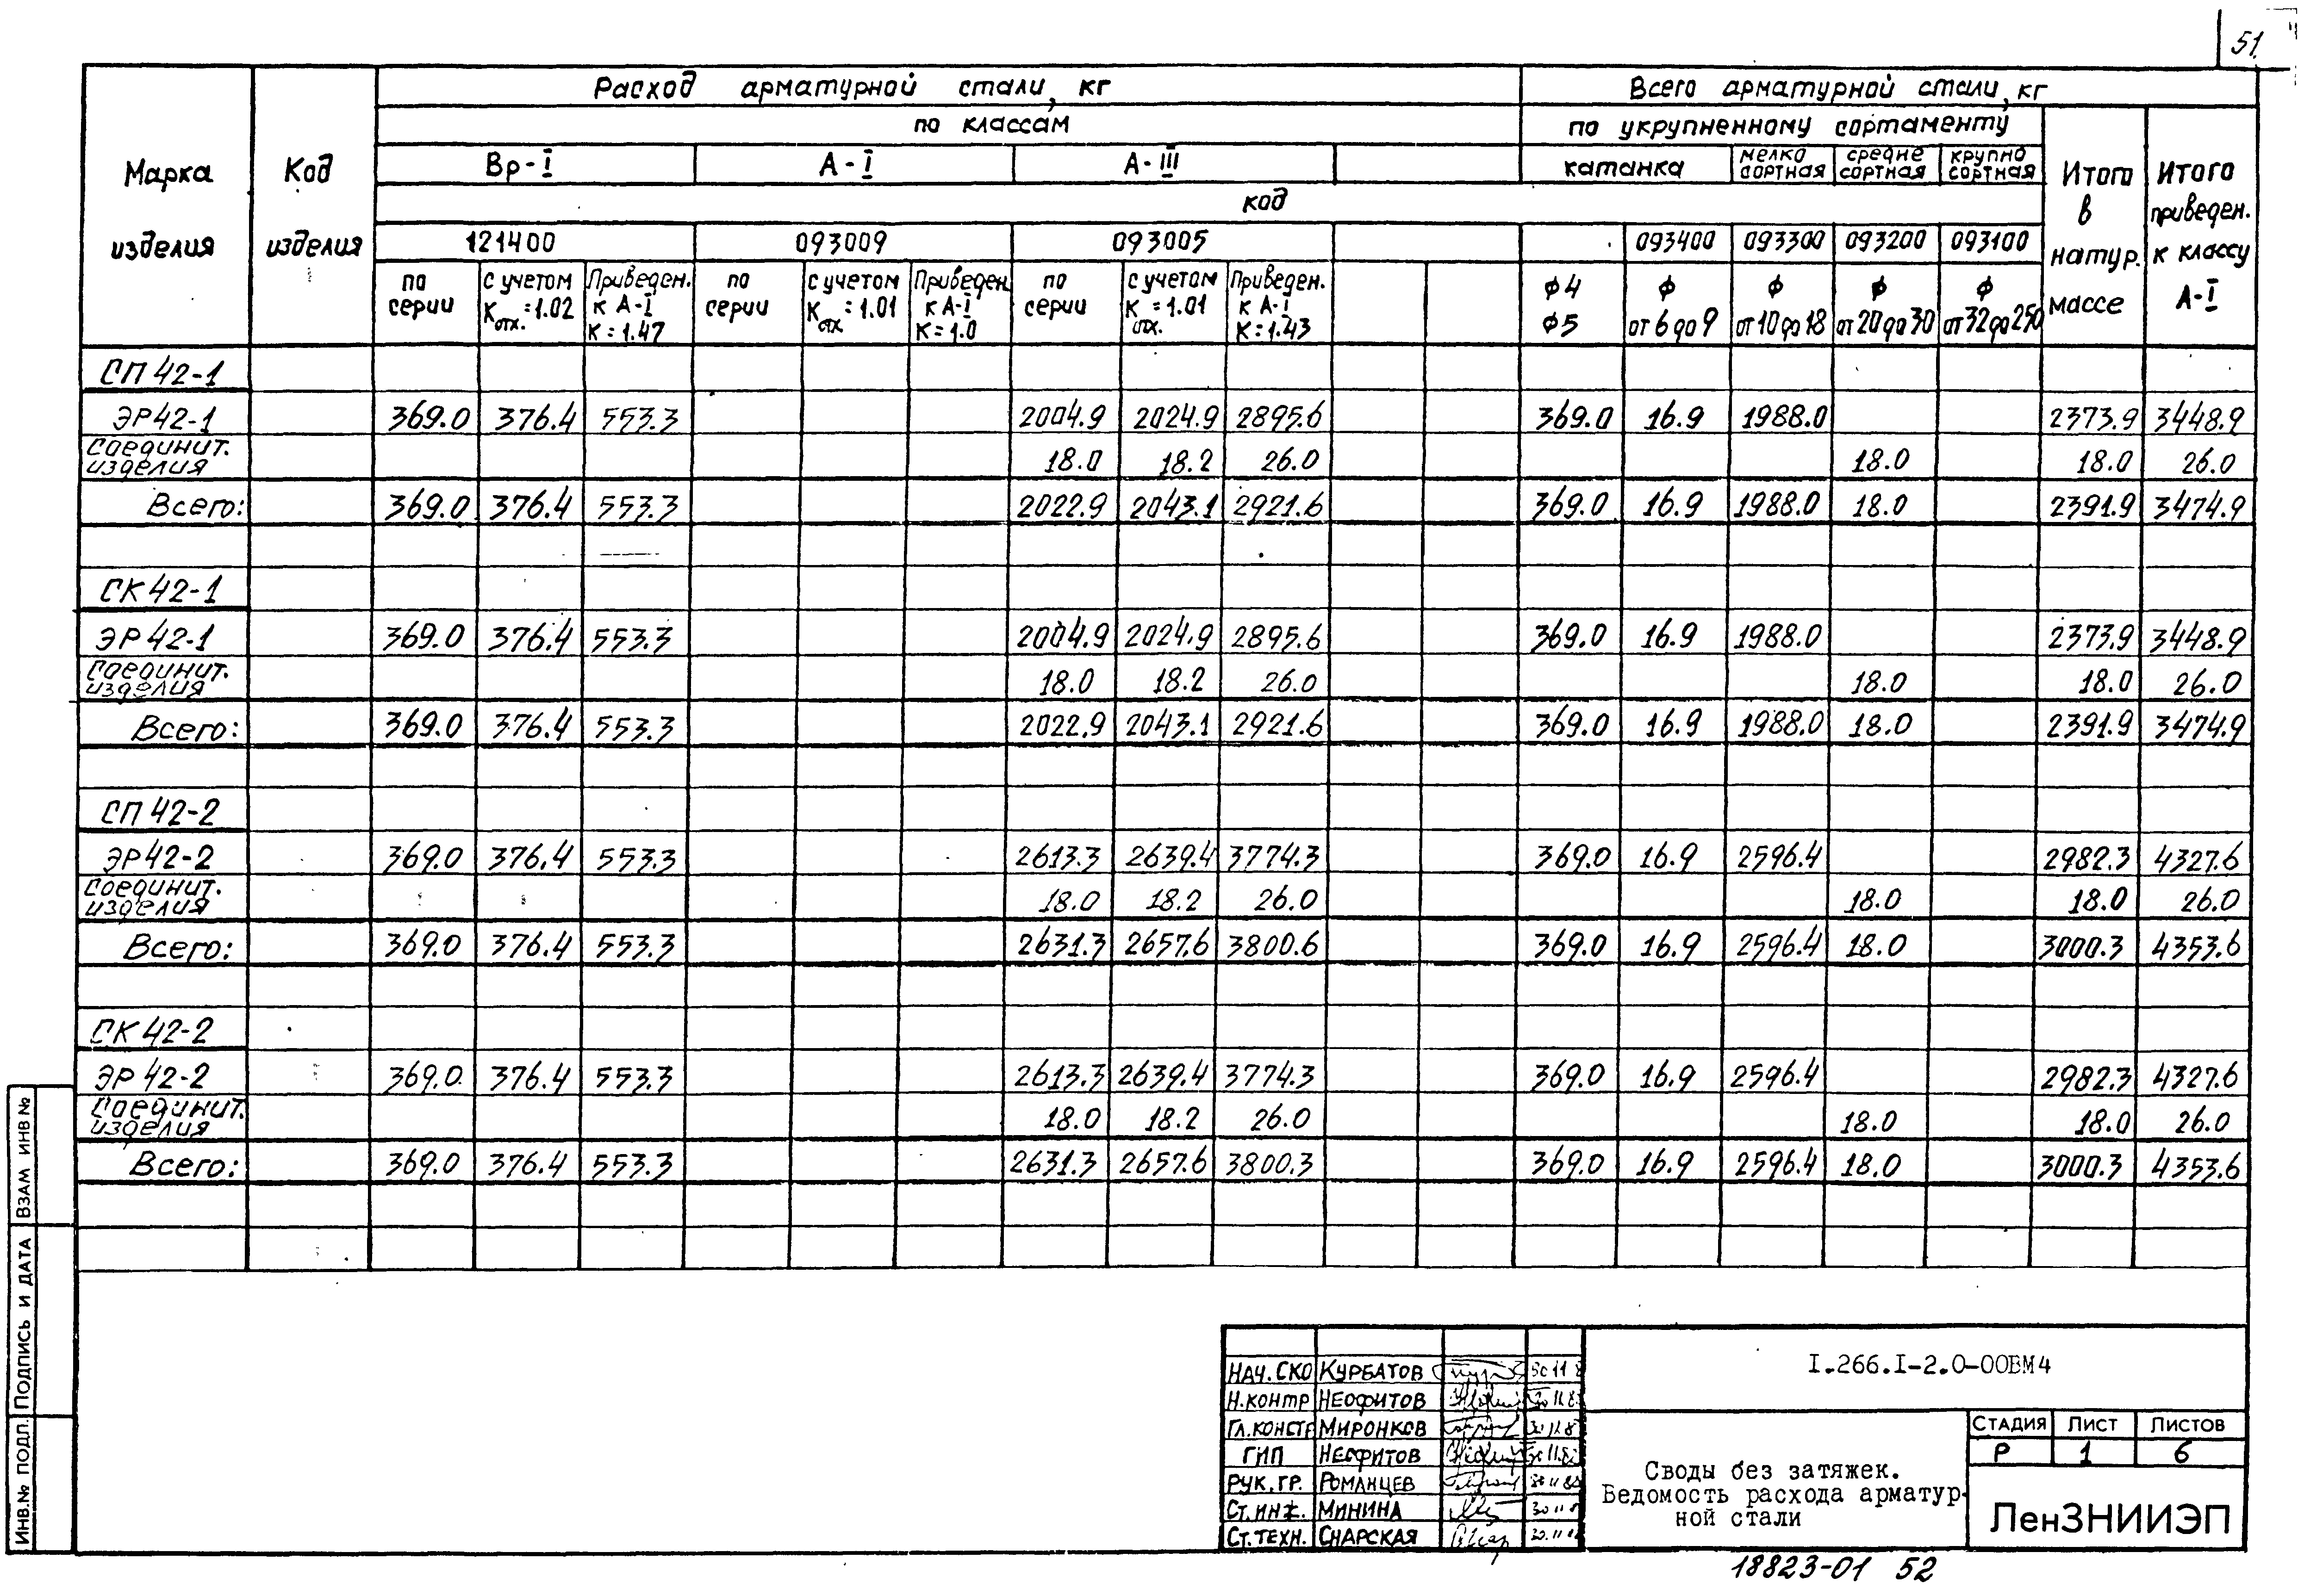 51
Расход арматурной стали, кг
Всего арматурной стали, кг
по классам
по укрупненному сортаменту
Марка изделия
Код изделия
Вр-I
А-I
А-III
катанка
мелко сортная
средне сортная
крупно сортная
Итого в натур. массе
Итого приведен. к классу А-I
код
121400
093009
093005
093400
093300
093200
093100
по серии
с учетом Kотх.=1.02
Приведен. к А-I К=1.47
по серии
с учетом Kотх=1.01
Приведен. к А-I К=1.0
по серии
с учетом Kотх.=1.01
Приведен. к А-I К=1.43
ф4 ф5
ф от 6 до 9
ф от 10 до 18
ф от 20 до 30
ф от 32 до 250
СП 42-1
ЭР42-1 369.0 376.4 553.3 2004.9 2024.9 2895.6 369.0 16.9 1988.0 2373.9 3448.9
Соединит. изделия 18.0 18.2 26.0 18.0 18.0 26.0
Всего: 369.0 376.4 553.3 2022.9 2043.1 2921.6 369.0 16.9 1988.0 18.0 2391.9 3474.9
СК 42-1
ЭР 42-1 369.0 376.4 553.3 2004.9 2024.9 2895.6 369.0 16.9 1988.0 2373.9 3448.9
Соединит. изделия 18.0 18.2 26.0 18.0 18.0 26.0
Всего: 369.0 376.4 553.3 2022.9 2043.1 2921.6 369.0 16.9 1988.0 18.0 2391.9 3474.9
СП 42-2
ЭР42-2 369.0 376.4 553.3 2613.3 2639.4 3774.3 369.0 16.9 2596.4 2982.3 4327.6
Соединит. изделия 18.0 18.2 26.0 18.0 18.0 26.0
Всего: 369.0 376.4 553.3 2631.3 2657.6 3800.6 369.0 16.9 2596.4 18.0 3000.3 4353.6
СК 42-2
ЭР 42-2 369.0 376.4 553.3 2613.3 2639.4 3774.3 369.0 16.9 2596.4 2982.3 4327.6
Соединит. изделия 18.0 18.2 26.0 18.0 18.0 26.0
Всего: 369.0 376.4 553.3 2631.3 2657.6 3800.3 369.0 16.9 2596.4 18.0 3000.3 4353.6
ИНВ.№ ПОДЛ. ПОДПИСЬ И ДАТА ВЗАМ ИНВ №
НАЧ. СКО КУРБАТОВ
Н.КОНТР НЕОФИТОВ
ГЛ.КОНСТР МИРОНКОВ
ГИП НЕОФИТОВ
РУК. ГР. РОМАНЦЕВ
СТ.ИНЖ. МИНИНА
СТ.ТЕХН. СНАРСКАЯ
I.266.I-2.0-00ВМ4
Своды без затяжек.
Ведомость расхода арматур-
ной стали
СТАДИЯ ЛИСТ ЛИСТОВ
Р 1 6
ЛенЗНИИЭП
18823-01 52